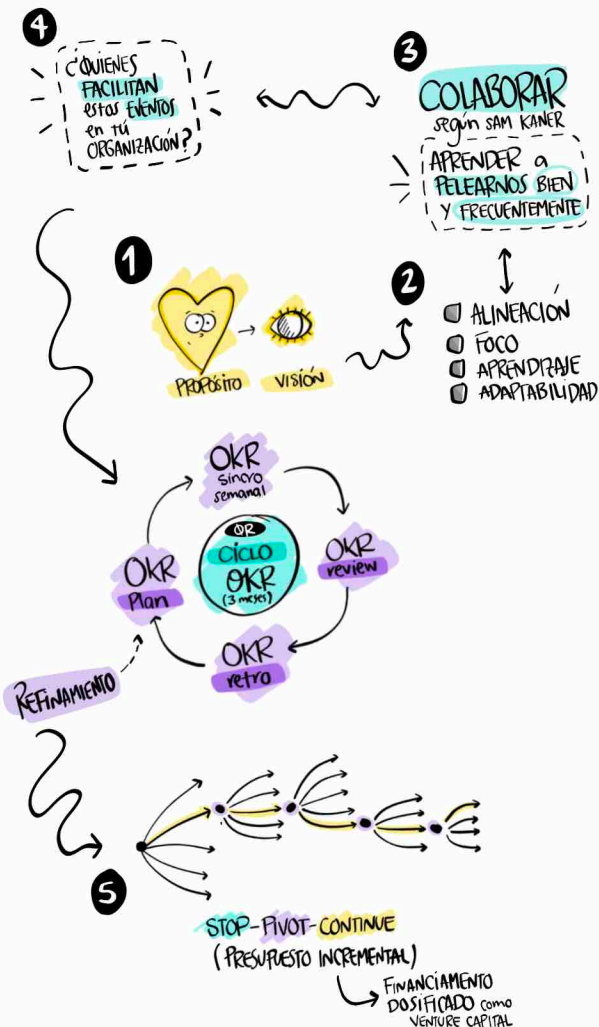 4
¿QUIENES
FACILITAN
estos EVENTOS
en tú
ORGANIZACIÓN?
3
COLABORAR
según SAM KANER
APRENDER a
PELEARNOS BIEN
Y FRECUENTEMENTE
1
PROPÓSITO
VISIÓN
2
ALINEACIÓN
FOCO
APRENDIZAJE
ADAPTABILIDAD
OKR
sincro
semanal
OKR
review
OKR
retro
OKR
Plan
QR
CICLO
OKR
(3 meses)
REFINAMIENTO
5
STOP-PIVOT-CONTINUE
(PRESUPUESTO INCREMENTAL)
FINANCIAMENTO
DOSIFICADO como
VENTURE CAPITAL